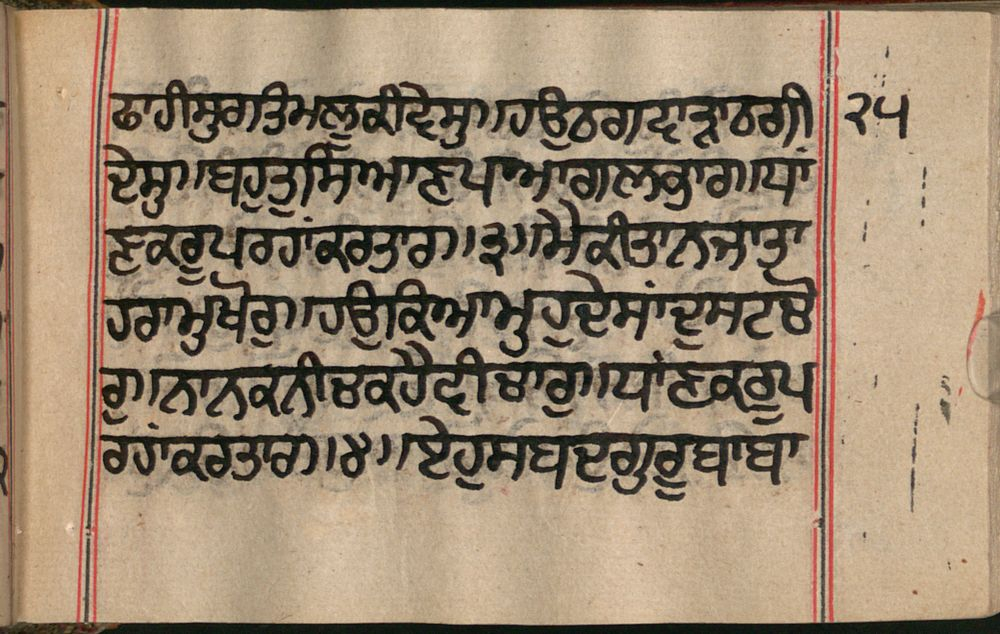 ਫਾਹੀਸੁਰਤਿਮਲੂਕੀਵੇਸੁ॥ਹਉਠਗਵਾੜਾਠਗੀ ੨੫
ਦੇਸੁ॥ਬਹੁਤੁਸਿਆਣਪਆਗਲਭਾਰ॥ਧਾਂ
ਣਕਰੂਪਰਹਾਂਕਰਤਾਰ॥੩॥ਮੈਕੀਤਾਨਜਾਤਾ
ਹਰਾਮੁਖੋਰੁ॥ਹਉਕਿਆਮੁਹੁਦੇਸਾਂਦੁਸਟਚੋ
ਰੁ॥ਨਾਨਕਨੀਚਕਹੈਵੀਚਾਰੁ॥ਧਾਂਣਕਰੂਪ
ਰਹਾਂਕਰਤਾਰ॥੪॥ਏਹੁਸਬਦਗੁਰੂਬਾਬਾ